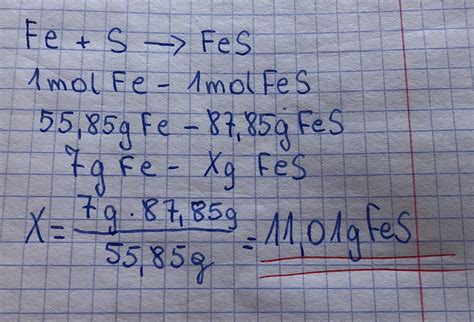 Fe + S → FeS
1mol Fe - 1mol FeS
55,85g Fe - 87,85g FeS
7g Fe - Xg FeS
X = 7g · 87,85g / 55,85g = 11,01g FeS